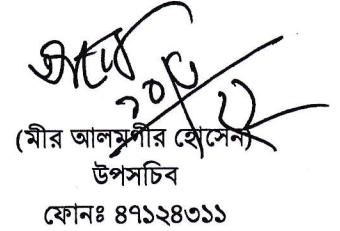 (মীর আলমগীর হোসেন)
উপসচিব
ফোনঃ ৪৭১২৪৩১১